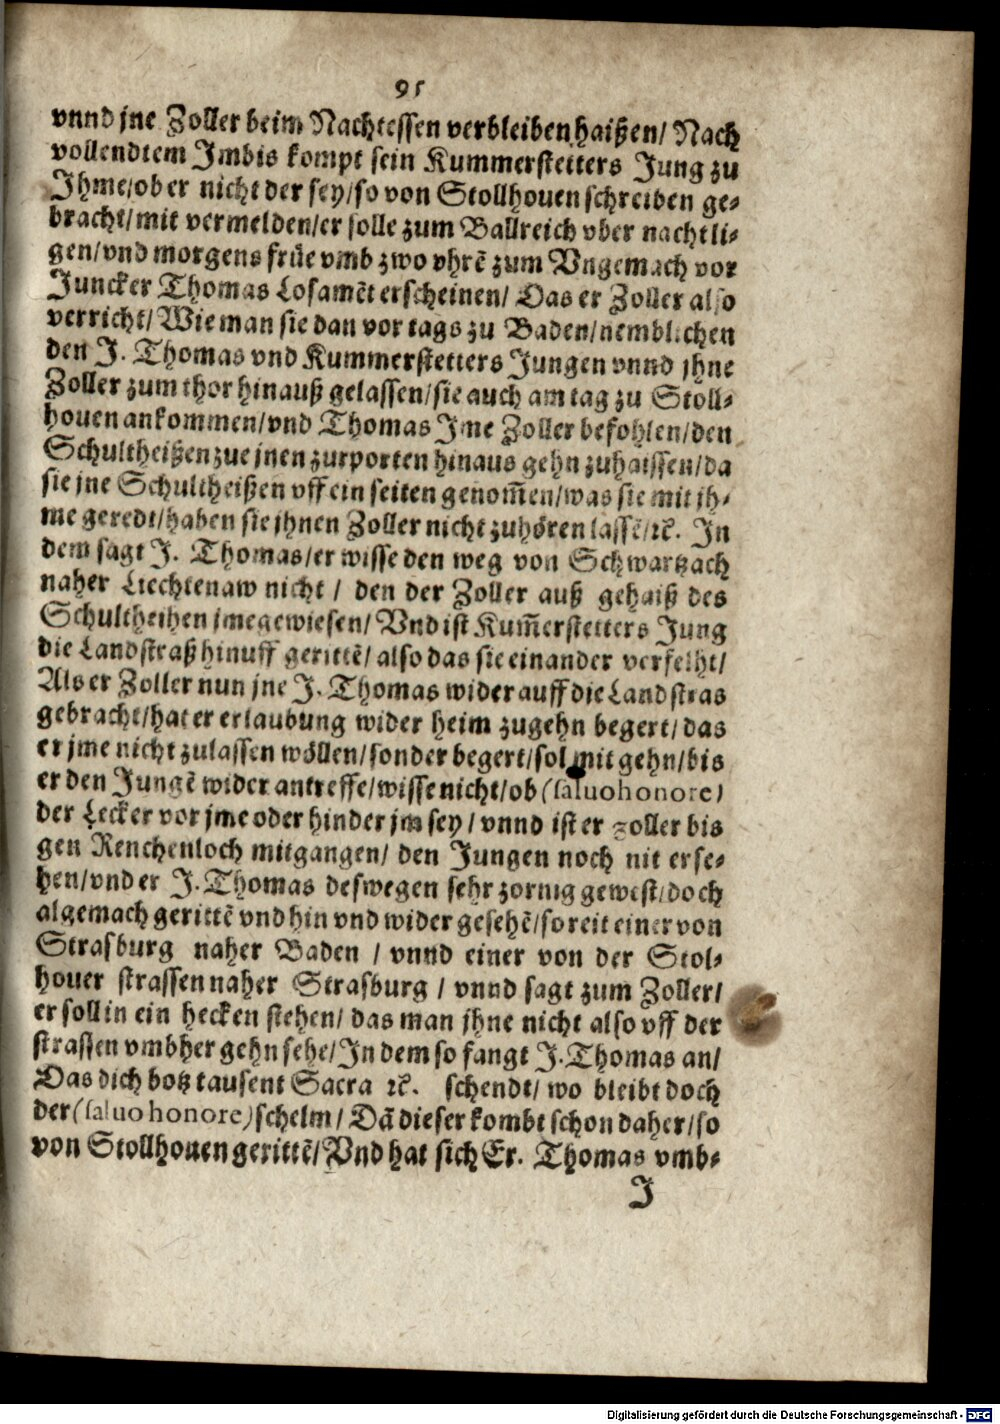 95
vnnd jne Zoller beim Nachtessen verbleiben haißen/ Nach
vollendtem Imbis kompt sein Kummerstetters Jung zu
Ihme/ob er nicht der sey/so von Stollhouen schreiben ge-
bracht/mit vermelden/er solle zum Ballreich vber nacht li-
gen/vnd morgens früe vmb zwo vhrē zum Vngemach vor
Juncker Thomas Losamēt erscheinen/ Das er Zoller also
verricht/Wie man sie dan vor tags zu Baden/nemblichen
den J. Thomas vnd Kummerstetters Jungen vnnd jhne
Zoller zum thor hinauß gelassen/sie auch am tag zu Stoll-
houen ankommen/vnd Thomas Jme Zoller befohlen/den
Schultheißen zue jnen zur porten hinaus gehn zuhaissen/da
sie jne Schultheißen vff ein seiten genom̄en/was sie mit jh-
me geredt/haben sie jhnen Zoller nicht zuhören lassē/ꝛc. In
dem sagt J. Thomas/er wisse den weg von Schwartzach
naher Liechtenaw nicht / den der Zoller auß gehaiß des
Schultheihen jme gewiesen/ Vnd ist Kum̄erstetters Jung
die Landstraß hinuff gerittē/ also das sie einander verfelht/
Als er Zoller nun jne J. Thomas wider auff die Landstras
gebracht/hat er erlaubung wider heim zugehn begert/das
er jme nicht zulassen wöllen/sonder begert/sol mit gehn/bis
er den Jungē wider antreffe/wisse nicht/ob (saluo honore)
der Lecker vor jme oder hinder jm sey/ vnnd ist er zoller bis
gen Renchenloch mitgangen/ den Jungen noch nit erse-
hen/vnd er J. Thomas deswegen sehr zornig gewest/doch
algemach gerittē vnd hin vnd wider gesehē/so reit einer von
Strasburg naher Baden / vnnd einer von der Stol-
houer strassen naher Strasburg / vnnd sagt zum Zoller/
er soll in ein hecken stehen/ das man jhne nicht also vff der
strassen vmbher gehn sehe/In dem so fangt J. Thomas an/
Das dich botz tausent Sacra ꝛc. schendt/ wo bleibt doch
der (saluo honore) schelm/ Dā dieser kombt schon daher/so
von Stollhouen gerittē/Vnd hat sich Er. Thomas vmb-
J
Digitalisierung gefördert durch die Deutsche Forschungsgemeinschaft - DFG